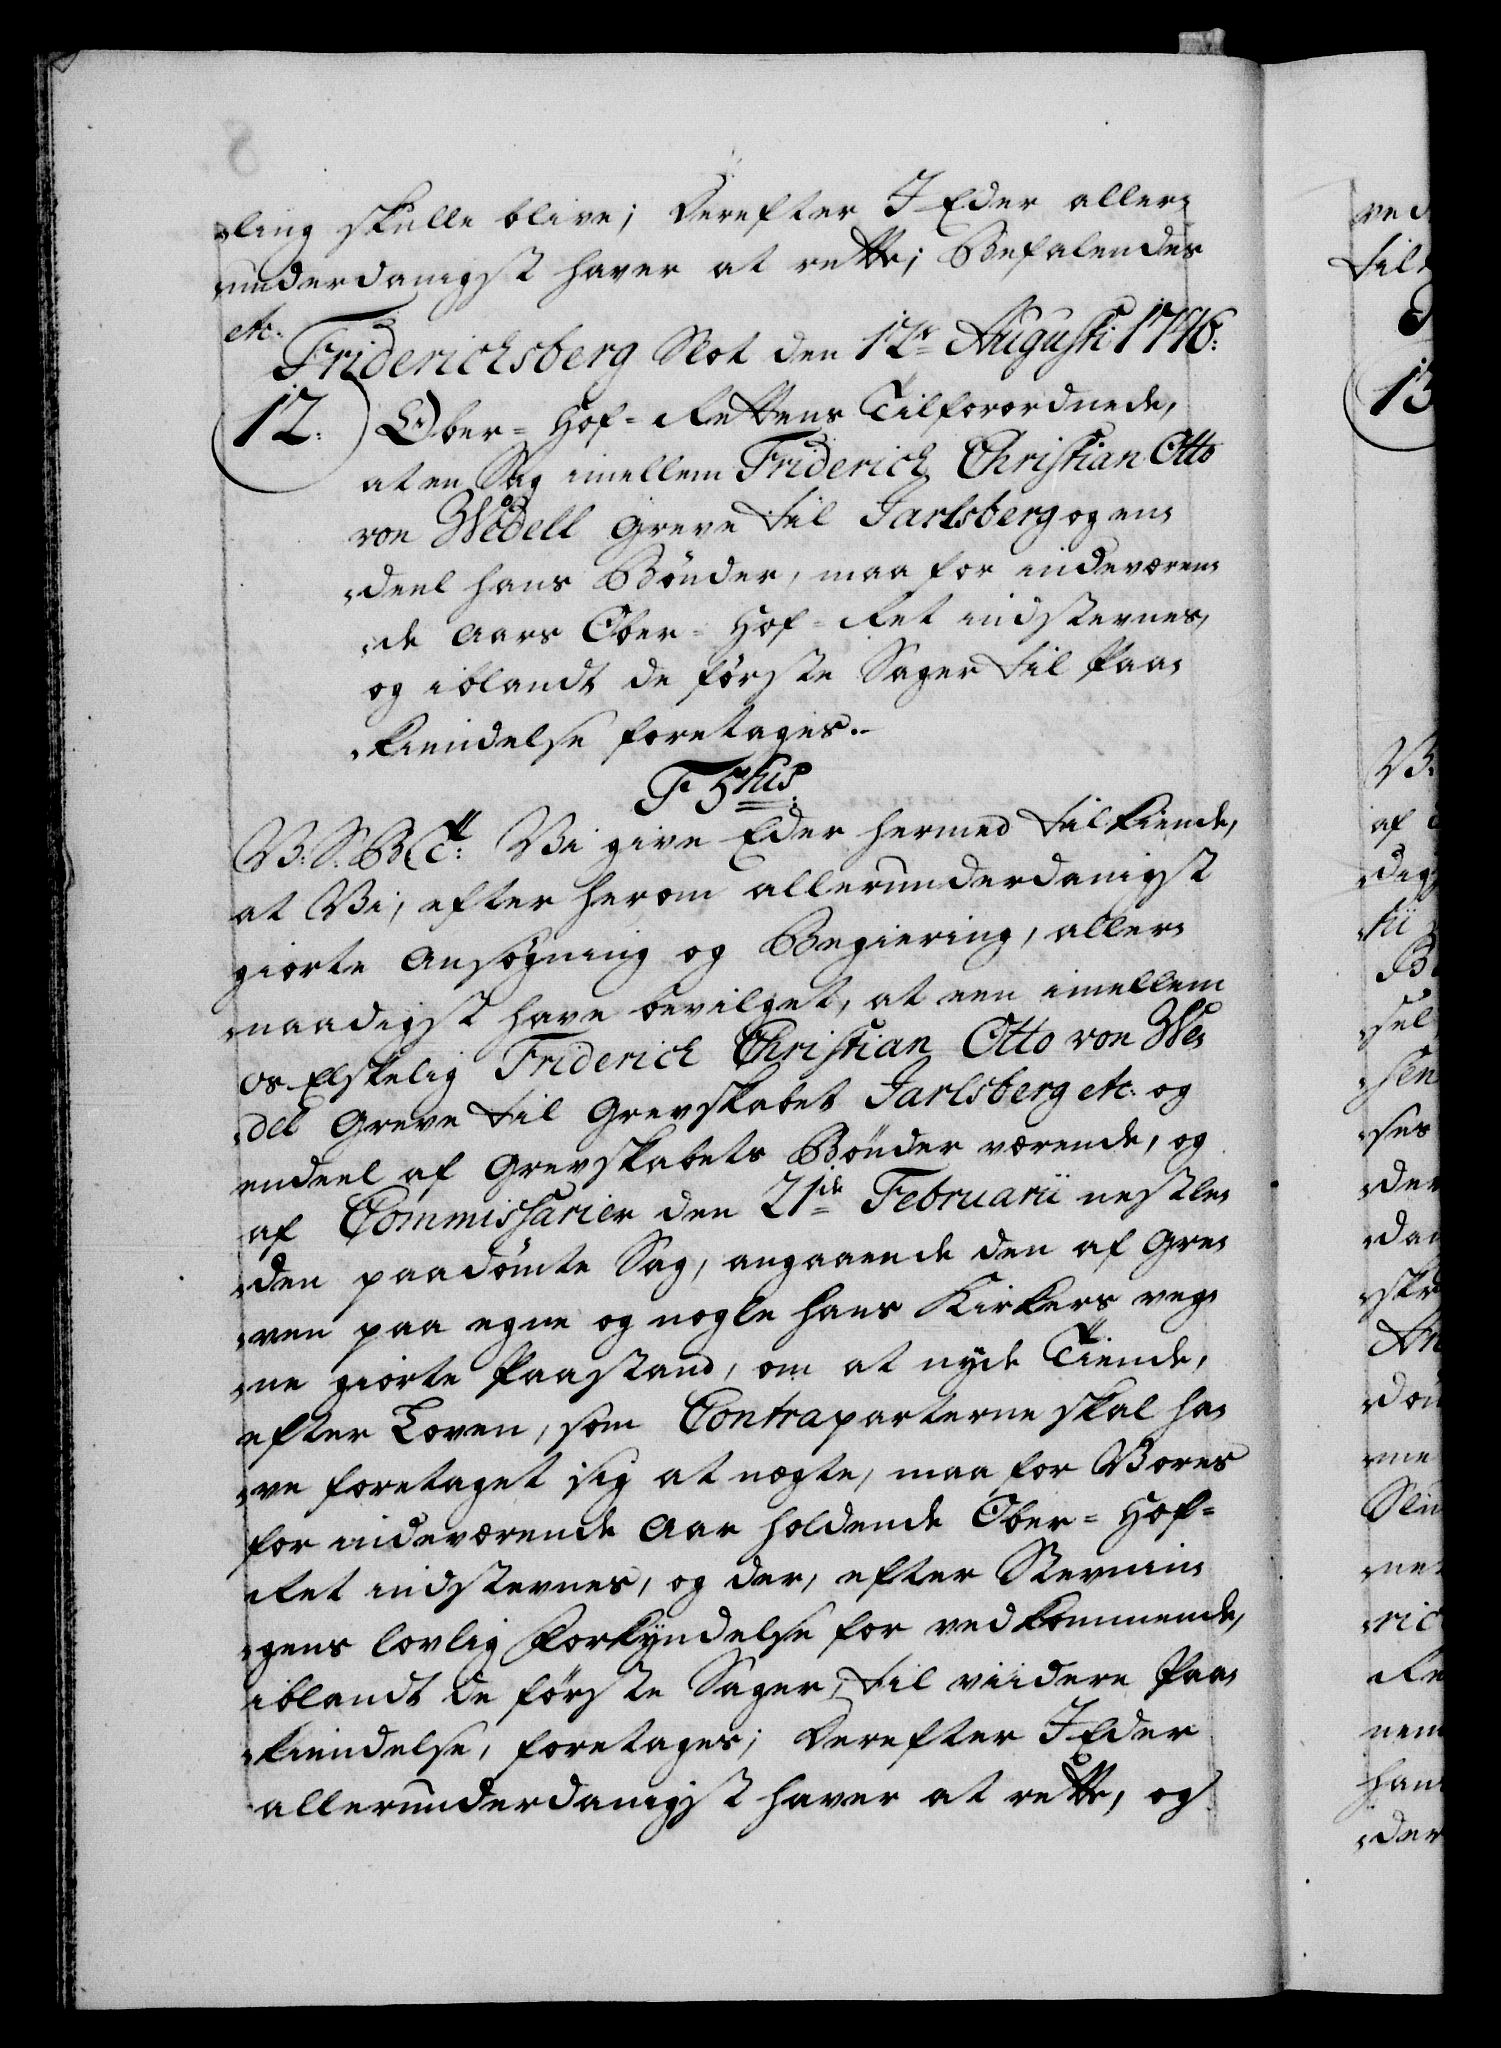 ling skulle blive; Derefter I Eder aller=
underdanigst haver at rette; Befalendes
etc.
Friderichsberg Slot den 12te Augusti 1746:
12: Ober=Hof=Rettens Tilforordnede,
at en Sag imellem Friderich Christian Otto
von Wedell Greve til Jarlsberg og en=
deel hans Bönder, maa for indeværen=
de Aars Ober=Hof=Ret indstevnes,
og iblandt de förste Sager til Paa=
kiendelse foretages.
F 5tus
V. S. B. Ct: Vi give Eder hermed tilkiende,
at Vi, efter herom allerunderdanigst
giorte Ansögning og Begiering, aller=
naadigst have bevilget, at een imellem
Os Elskelig Friderich Christian Otto von We=
del Greve til Grevskabet Jarlsberg etc. og
endeel af Grevskabets Bönder værende, og
af Commissarier den 21de Februarii nestle=
den paadömte Sag, angaaende den af Gre=
ven paa egne og nogle hans Kirkers veg=
ne giorte Paastand, om at nyde Tiende,
efter Loven, som Contraparterne skal ha=
ve foretaget sig at negte, maa for Vores
for indeværende Aar holdende Ober=Hof=
Ret indstevnes, og der, efter Stevnin=
gens lovlig Forkyndelse for vedkommende,
iblandt de förste Sager, til viidere Paa=
kiendelse, foretages; Derefter I Eder
allerunderdanigst haver at rette, og